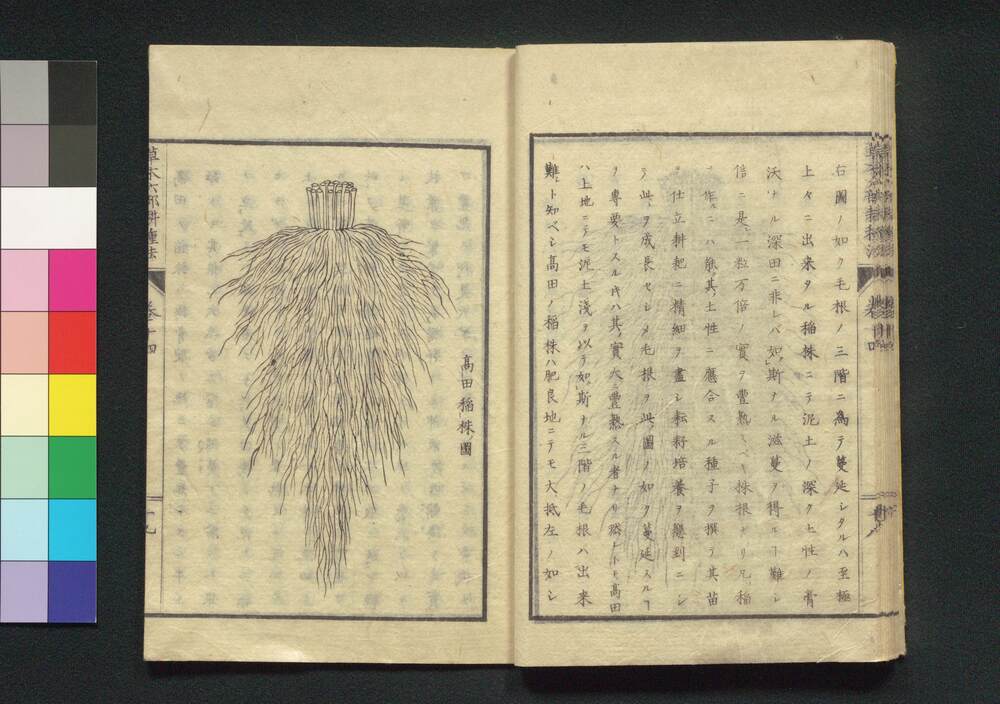 右圖ノ如ク毛根ノ三階ニ為テ蔓延シタルハ至極
上々ニ出来タル稲株ニテ泥土ノ深ク土性ノ膏
沃ナル深田ニ非レバ如斯ナル滋蔓ヲ得ルヿ難シ
信ニ是一粒万倍ノ實ヲ豊熟スベキ株根ナリ凡稲
ヲ作ニハ能其土性ニ應合スル種子ヲ撰ヲ其苗
ヲ仕立耕耙ニ精細ヲ盡シ耘耔培養ヲ懇到ニシ
テ此ヲ成長セシメ毛根ヲ此圖ノ如ク蔓延スルヿ
ヲ專要トスル片ハ其實大ニ豊熟スル者ナリ然レトモ髙田
ハ上地ニテモ泥土淺ヲ以テ如斯ナル三階ノ毛根ハ出来
難ト知ベシ髙田ノ稲株ハ肥良地ニテモ大抵左ノ如シ
髙田稲株圖
草木六部耕種法
卷十四
十九